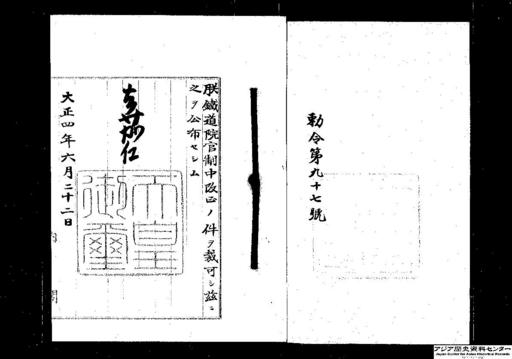 勅令第九十七號
朕鐵道院官制中改正ノ件ヲ裁可シ茲ニ
之ヲ公布セシム
嘉仁
大正四年六月二十二日
天皇
御璽
内
閣
アジア歴史資料センター
Japan Center for Asian Historical Records